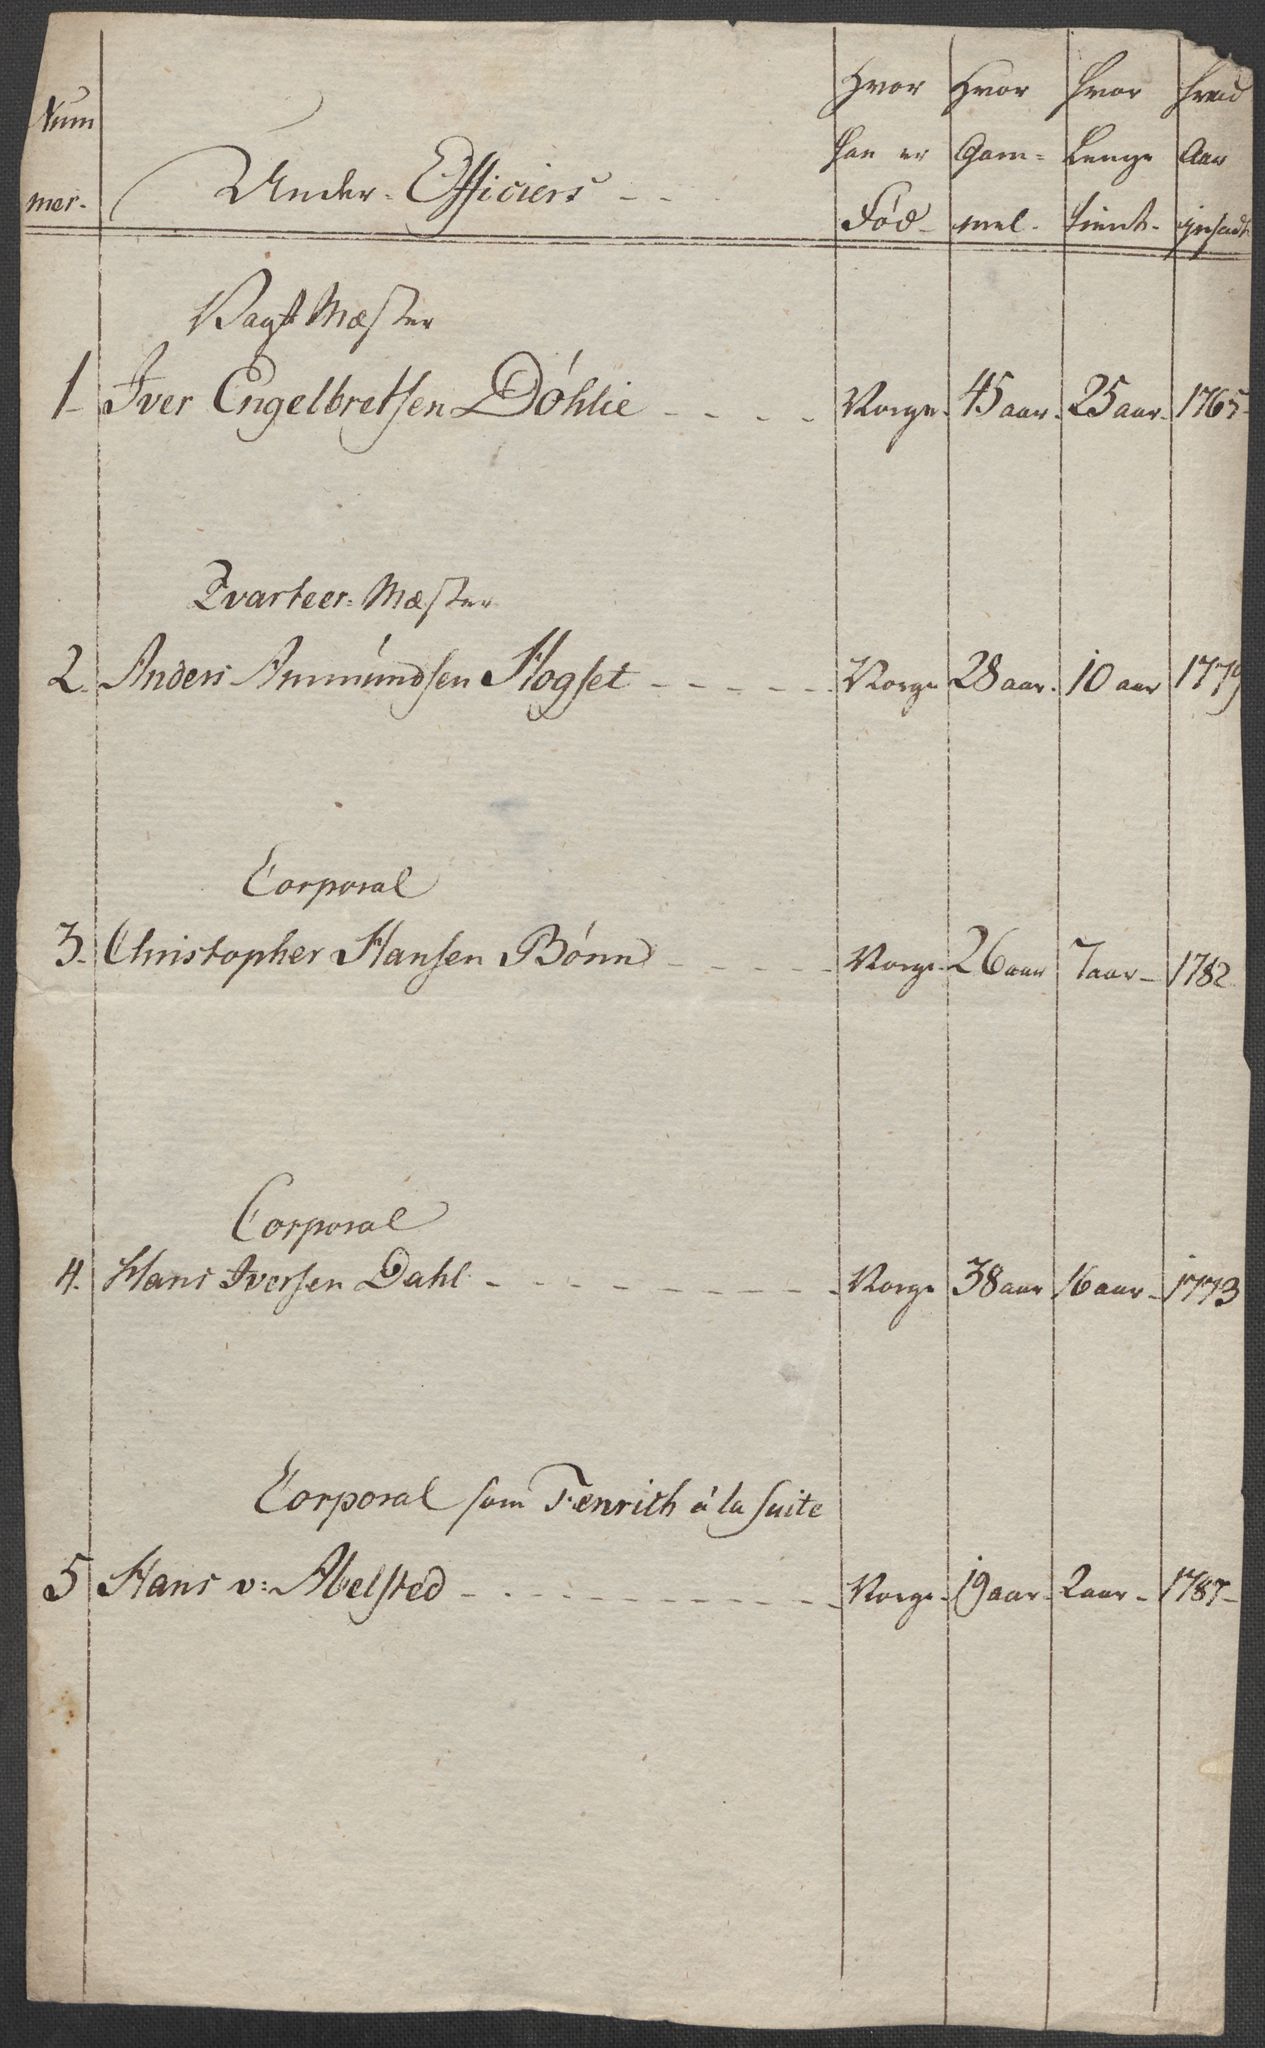 Num
mer-
Under-Officiers
Hvor
han er
Fød-
Hvor
Gam=
mel-
Hvor
Lenge
tient-
Hvad
Aar
Vagt Mæster
1 Iver Engelbretsen Døhlie Norge- 45 aar- 25 aar- 1765-
Qvarteer-Mæster
2. Anders Ammúndsen Hogset Norge 28 aar- 10 aar 1779
Corporal
3- Christopher Hansen Bønn Norge- 26 aar 7 aar- 1782
Corporal
4. Hans Iversen Dahl Norge 38 aar 16 aar- 1773
Corporal som Fenrich á la suite
5 Hans v: Abelsted Norge- 19 aar- 2 aar- 1787-